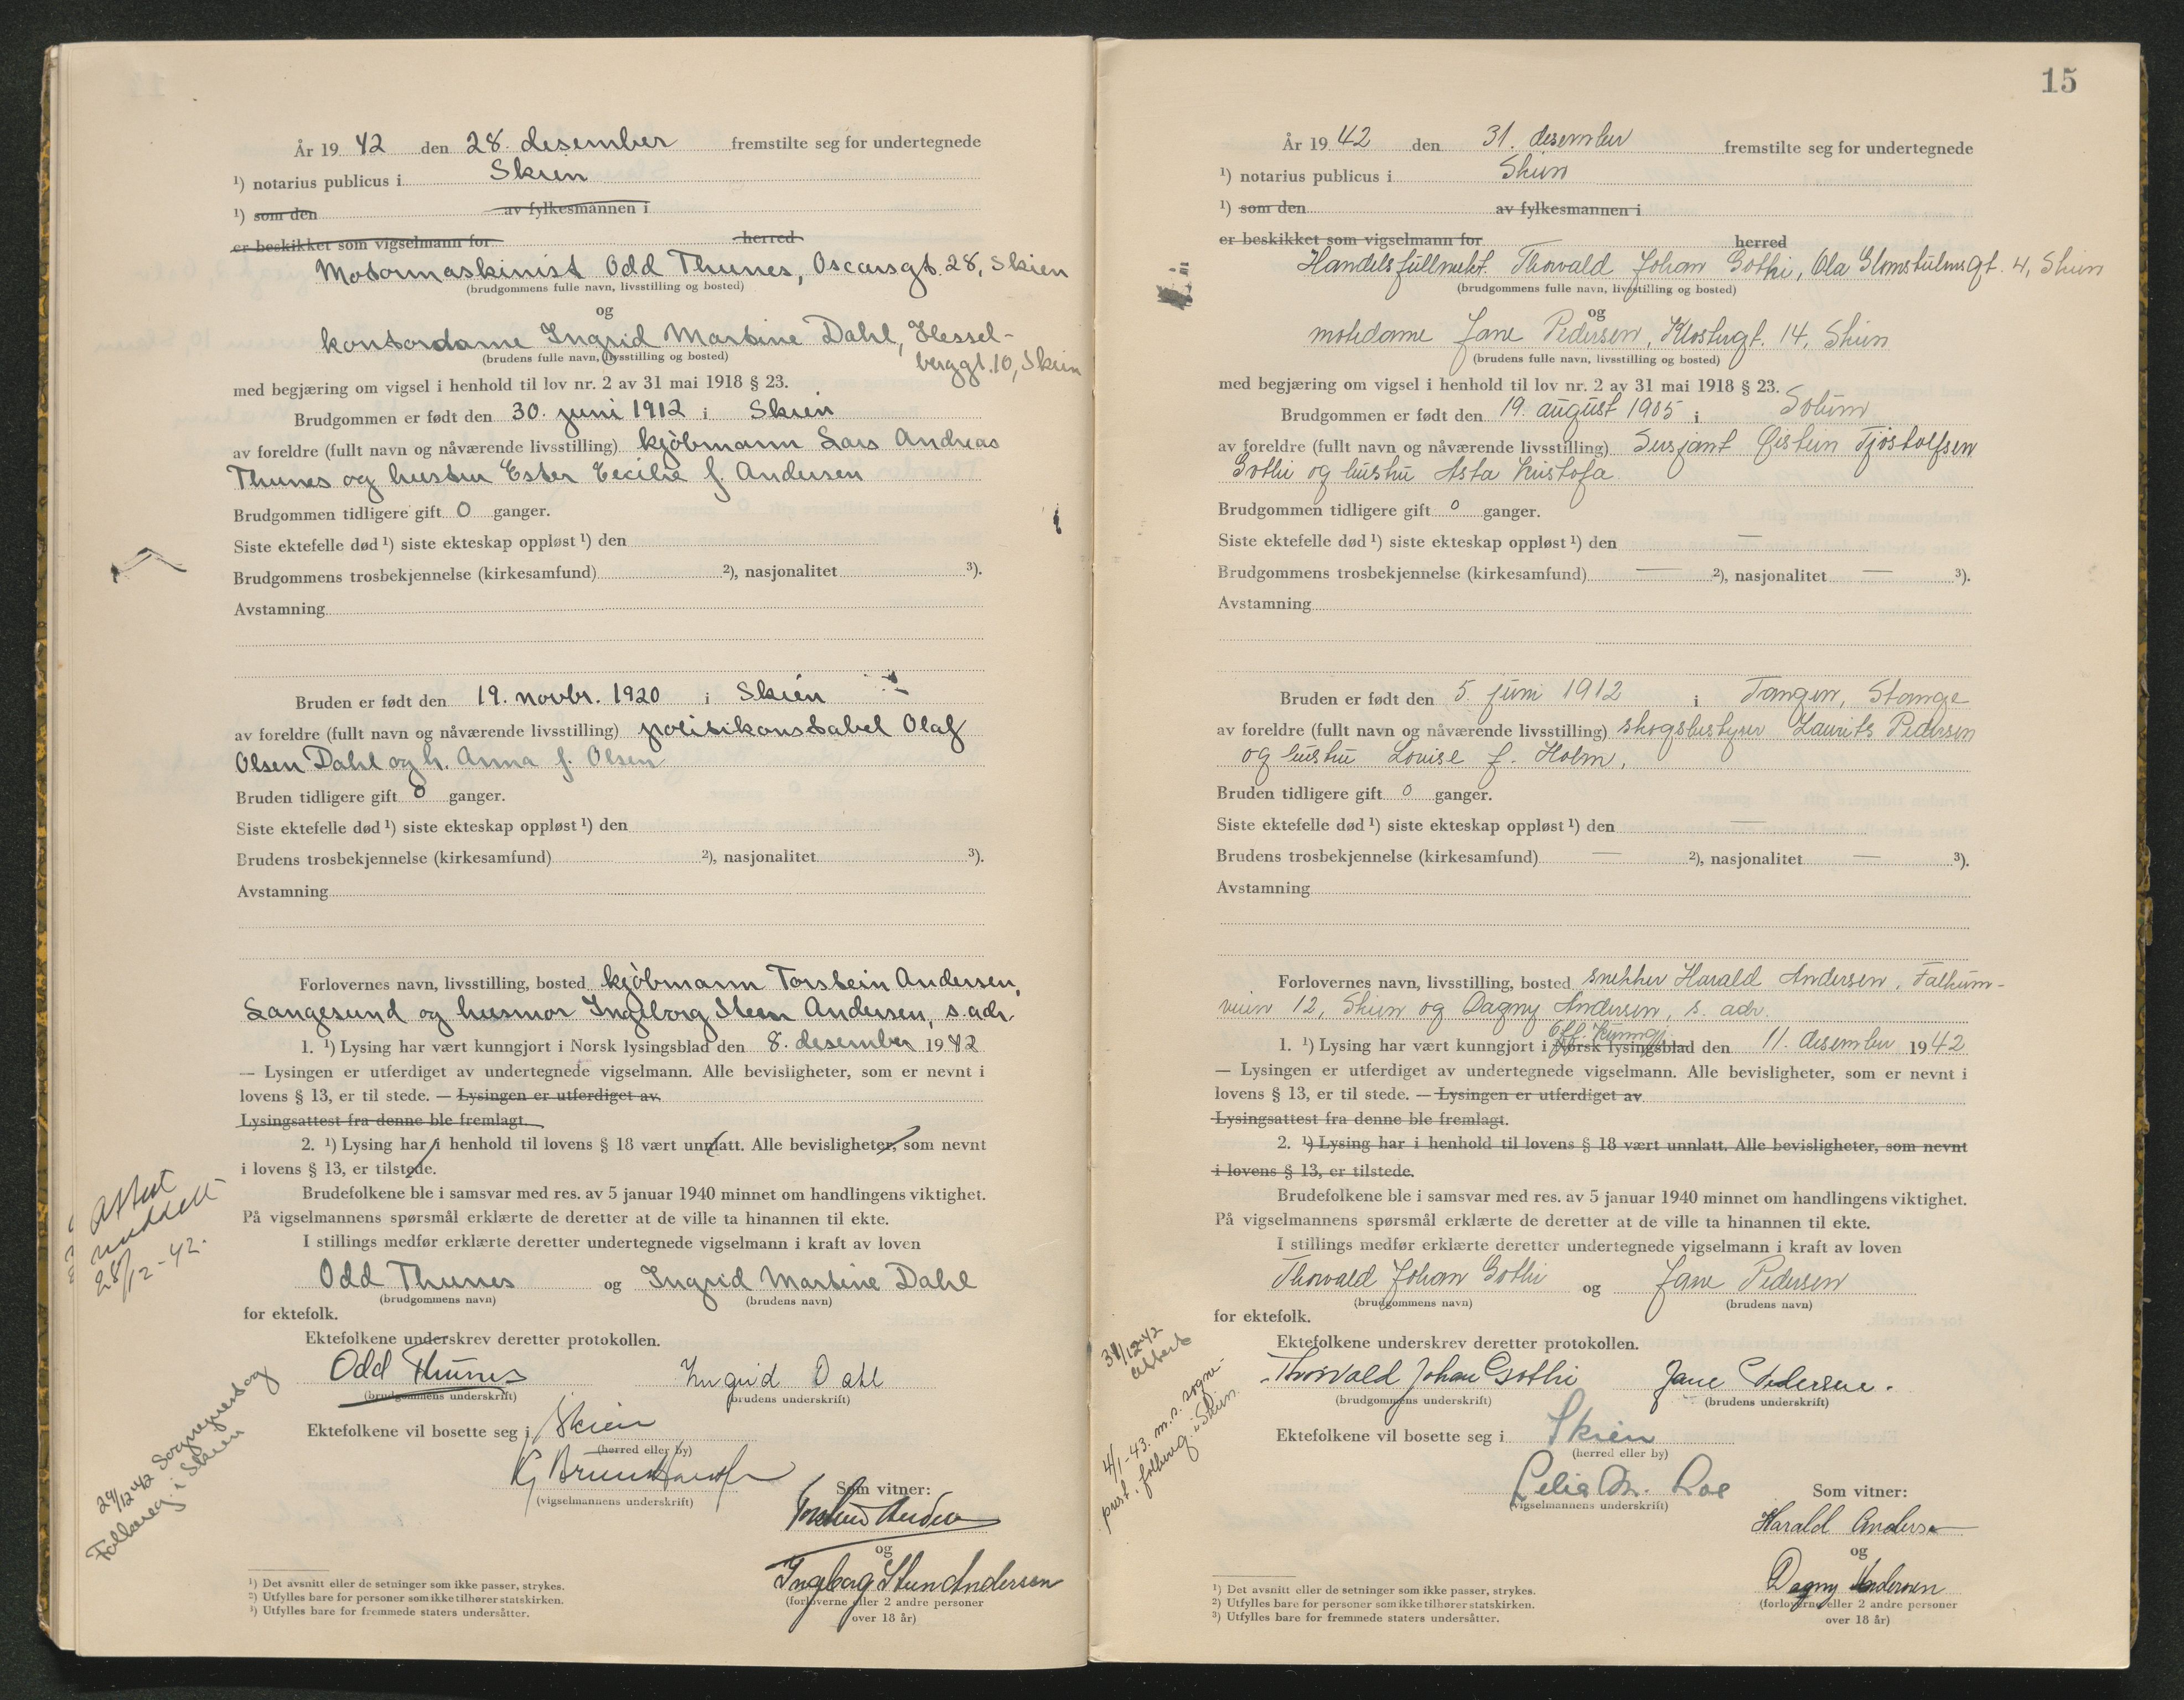 År 19 42 den 28. desember fremstilte seg for undertegnede
¹) notarius publicus i Skien
¹) som den av fylkesmannen i
er beskikket som vigselmann for herred
Motormaskinist Odd Thunes, Oscarsgt. 28, Skien
(brudgommens fulle navn, livsstilling og bosted)
og
kontordame Ingrid Martine Dahl, Hessel-
(brudens fulle navn, livsstilling og bosted)
berggt. 10, Skien
med begjæring om vigsel i henhold til lov nr. 2 av 31 mai 1918 § 23.
Brudgommen er født den 30. juni 1912 i Skien
av foreldre (fullt navn og nåværende livsstilling) kjøbmann Lars Andreas
Thunes og hustru Ester Cecilie f. Andersen
Brudgommen tidligere gift 0 ganger.
Siste ektefelle død ¹) siste ekteskap oppløst ¹) den
Brudgommens trosbekjennelse (kirkesamfund) ²), nasjonalitet ³).
Avstamning
Bruden er født den 19. novbr. 1920 i Skien
av foreldre (fullt navn og nåværende livsstilling) politikonstabel Olaf
Olsen Dahl og h. Anna f. Olsen
Bruden tidligere gift 0 ganger.
Siste ektefelle død ¹) siste ekteskap oppløst ¹) den
Brudens trosbekjennelse (kirkesamfund) ²), nasjonalitet ³).
Avstamning
Forlovernes navn, livsstilling, bosted kjøbmann Torstein Andersen,
Langesund og husmor Ingeborg Steen Andersen, s. adr.
1. ¹) Lysing har vært kunngjort i Norsk lysingsblad den 8. desember 19 42
— Lysingen er utferdiget av undertegnede vigselmann. Alle bevisligheter, som er nevnt i
lovens § 13, er til stede. — Lysingen er utferdiget av
Lysingsattest fra denne ble fremlagt.
2. ¹) Lysing har i henhold til lovens § 18 vært unnlatt. Alle bevisligheter, som nevnt
i lovens § 13, er tilstede.
Brudefolkene ble i samsvar med res. av 5 januar 1940 minnet om handlingens viktighet.
På vigselmannens spørsmål erklærte de deretter at de ville ta hinannen til ekte.
I stillings medfør erklærte deretter undertegnede vigselmann i kraft av loven
Odd Thunes og Ingrid Martine Dahl
(brudgommens navn) (brudens navn)
for ektefolk.
Ektefolkene underskrev deretter protokollen.
Odd Thunes Ingrid Dahl
(brudgommens underskrift) (brudens underskrift)
Ektefolkene vil bosette seg i Skien
(herred eller by)
(vigselmannens underskrift)
Som vitner:
Torstein Andersen
og
Ingeborg Steen Andersen
(forloverne eller 2 andre personer
over 18 år)
¹) Det avsnitt eller de setninger som ikke passer, strykes.
²) Utfylles bare for personer som ikke tilhører statskirken.
³) Utfylles bare for fremmede staters undersåtter.
Attest
meddelt
28/12-42.
29/12-42 Sogneprest og
Folkereg. i Skien
15
År 19 42 den 31. desember fremstilte seg for undertegnede
¹) notarius publicus i Skien
¹) som den av fylkesmannen i
er beskikket som vigselmann for herred
Handelsfullmekt. Thorvald Johan Gothi, Ola Glomstulensgt. 4, Skien
(brudgommens fulle navn, livsstilling og bosted)
og
motedame Jane Pedersen, Klostergt. 14, Skien
(brudens fulle navn, livsstilling og bosted)
med begjæring om vigsel i henhold til lov nr. 2 av 31 mai 1918 § 23.
Brudgommen er født den 19. august 1905 i Solum
av foreldre (fullt navn og nåværende livsstilling) Sersjant Øistein Tjøstolfsen
Gothi og hustru Asta Kristofa
Brudgommen tidligere gift 0 ganger.
Siste ektefelle død ¹) siste ekteskap oppløst ¹) den —
Brudgommens trosbekjennelse (kirkesamfund) — ²), nasjonalitet — ³).
Avstamning
Bruden er født den 5. juni 1912 i Tangen, Stange
av foreldre (fullt navn og nåværende livsstilling) skogbestyrer Laurits Pedersen
og hustru Louise f. Holm.
Bruden tidligere gift 0 ganger.
Siste ektefelle død ¹) siste ekteskap oppløst ¹) den —
Brudens trosbekjennelse (kirkesamfund) — ²), nasjonalitet — ³).
Avstamning
Forlovernes navn, livsstilling, bosted snekker Harald Andersen, Falkum-
veien 12, Skien og Dagny Andersen, s. adr.
Off. Kunngj.
1. ¹) Lysing har vært kunngjort i Norsk lysingsblad den 11. desember 19 42
— Lysingen er utferdiget av undertegnede vigselmann. Alle bevisligheter, som er nevnt i
lovens § 13, er til stede. — Lysingen er utferdiget av
Lysingsattest fra denne ble fremlagt.
2. ¹) Lysing har i henhold til lovens § 18 vært unnlatt. Alle bevisligheter, som nevnt
i lovens § 13, er tilstede.
Brudefolkene ble i samsvar med res. av 5 januar 1940 minnet om handlingens viktighet.
På vigselmannens spørsmål erklærte de deretter at de ville ta hinannen til ekte.
I stillings medfør erklærte deretter undertegnede vigselmann i kraft av loven
Thorvald Johan Gothi og Jane Pedersen
(brudgommens navn) (brudens navn)
for ektefolk.
Ektefolkene underskrev deretter protokollen.
Thorvald Johan Gothi Jane Pedersen.
(brudgommens underskrift) (brudens underskrift)
Ektefolkene vil bosette seg i Skien
(herred eller by)
Celia M. Roe
(vigselmannens underskrift)
Som vitner:
Harald Andersen
og
Dagny Andersen
(forloverne eller 2 andre personer
over 18 år)
¹) Det avsnitt eller de setninger som ikke passer, strykes.
²) Utfylles bare for personer som ikke tilhører statskirken.
³) Utfylles bare for fremmede staters undersåtter.
31/12-42
attest
4/1-43. m. s. sogne-
prest. folkereg. i Skien.